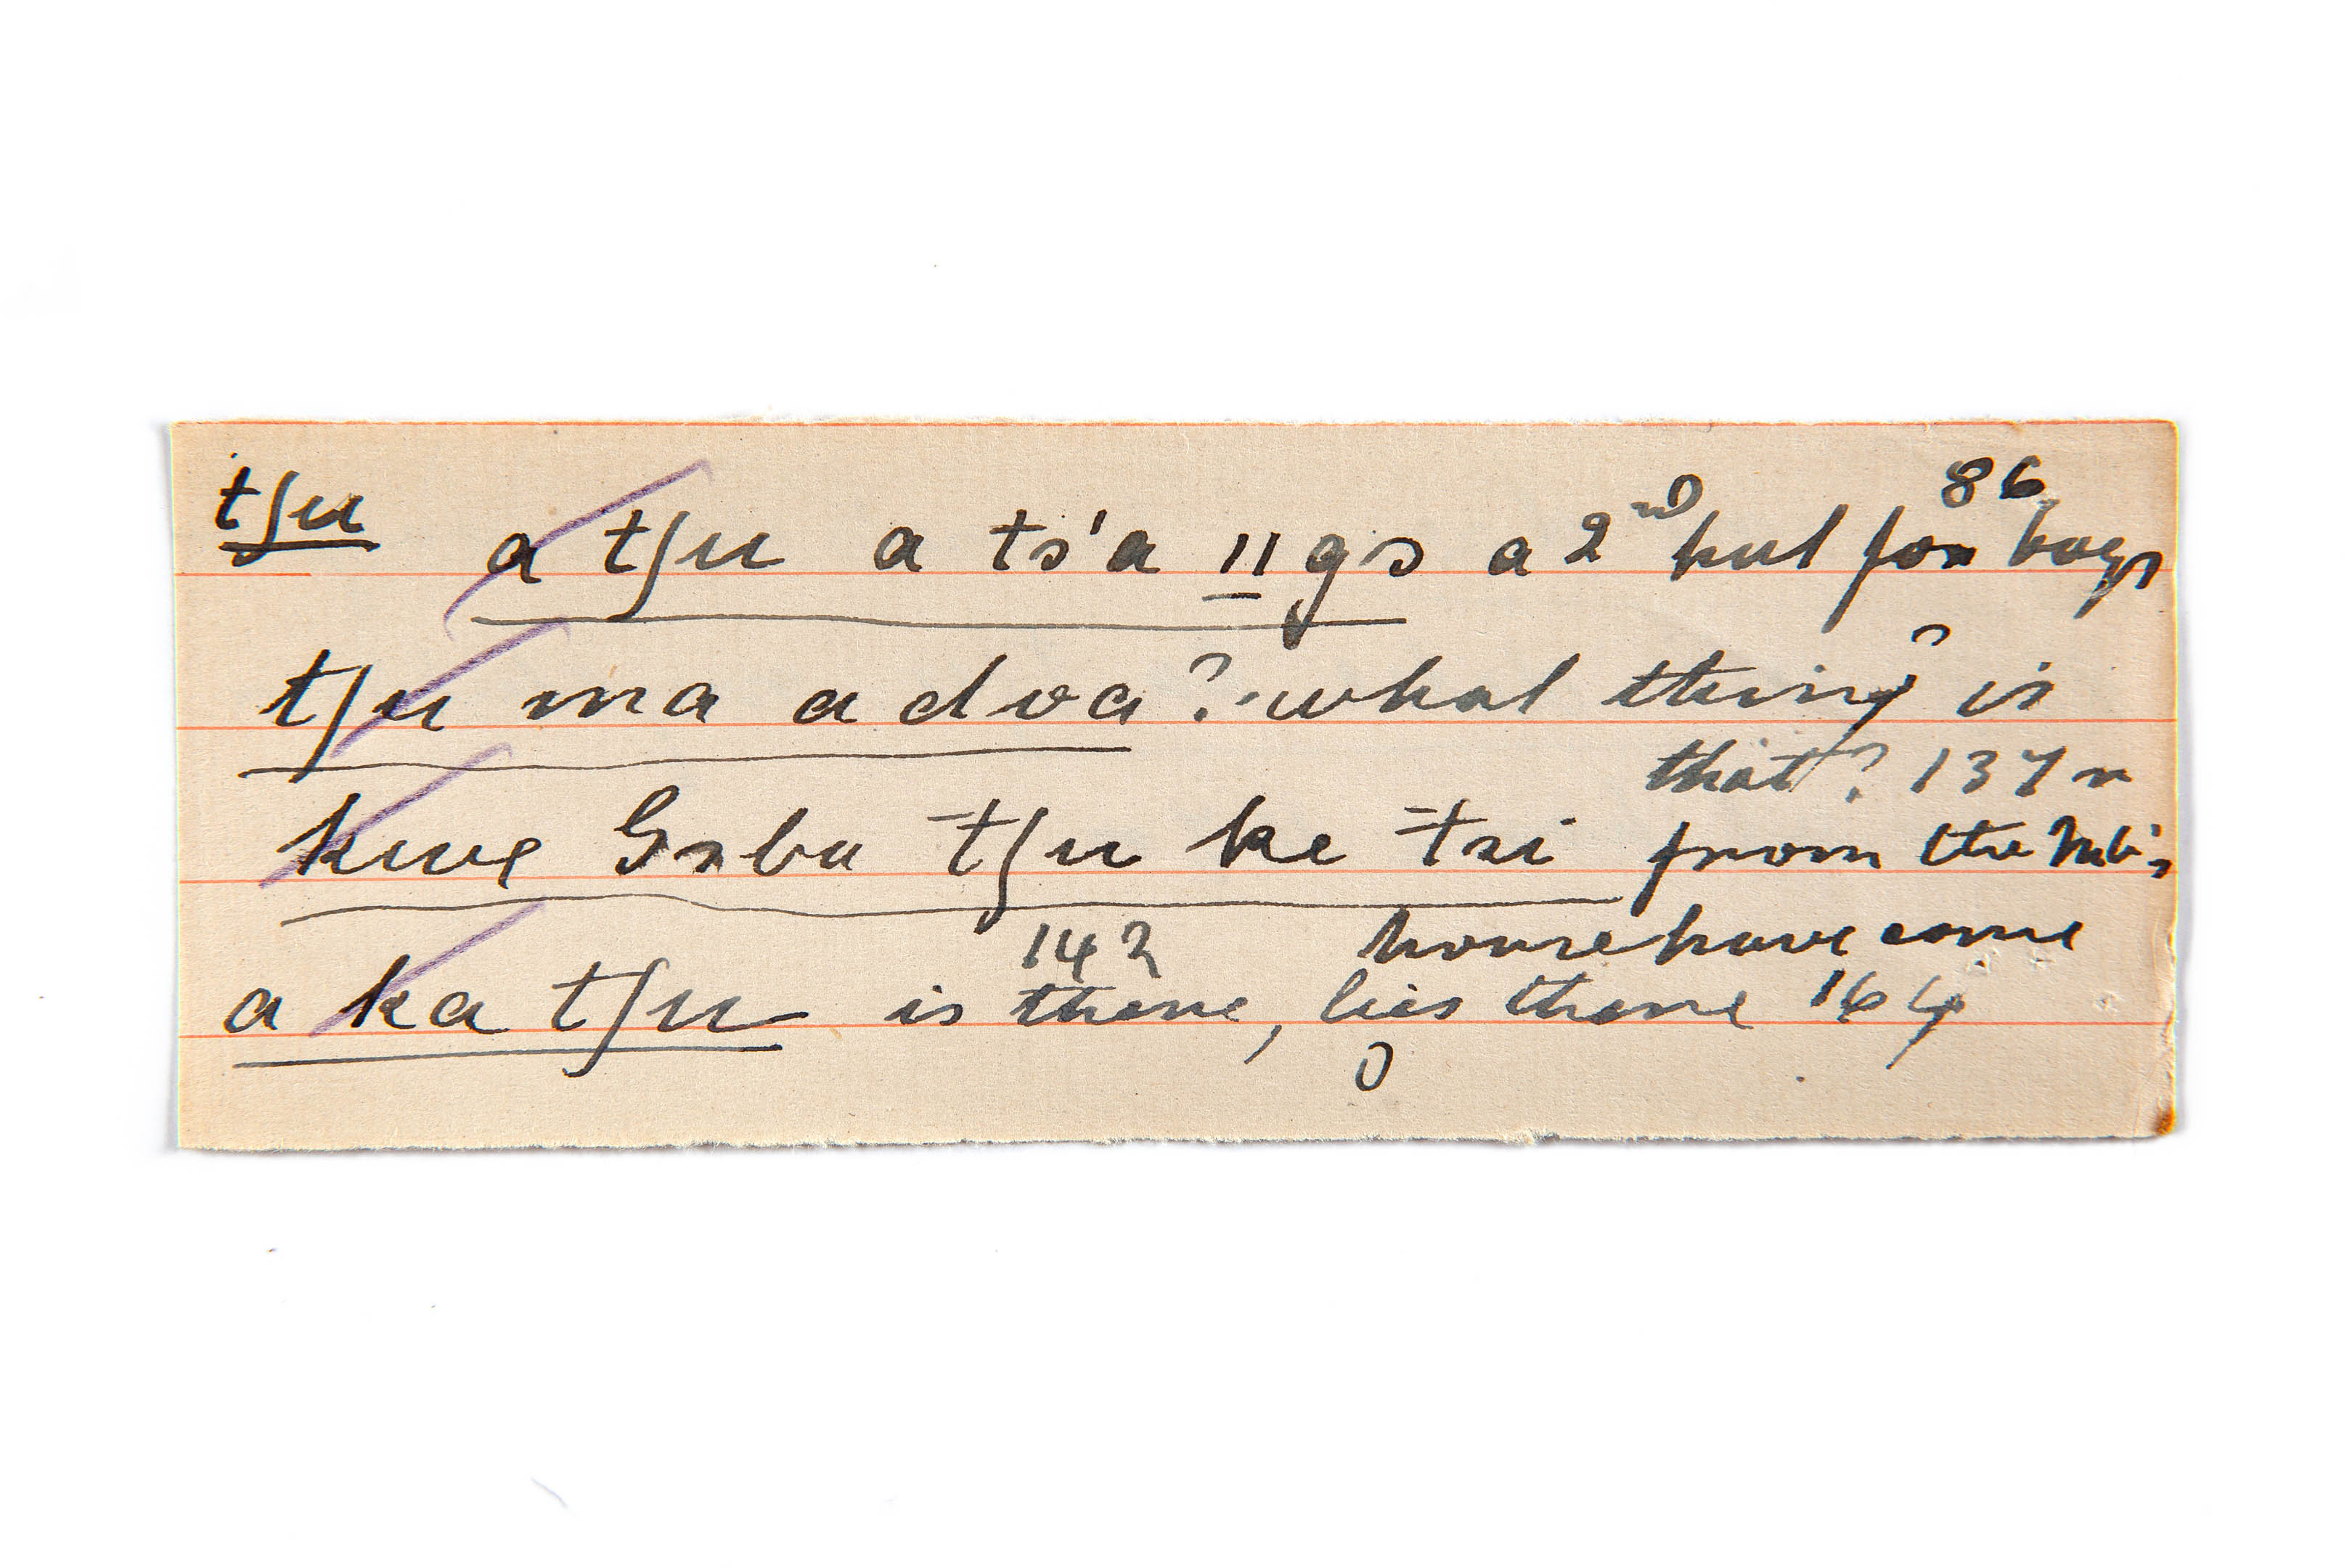 tʃu
86
a tʃu a ts'a ǁgɔ a 2nd hut for boys
tʃu ma a dva? what thing is
that? 137 n
kwe Gɔbu tʃu ke tsi from the
142 house have come
a ka tʃu is there, lies there 164